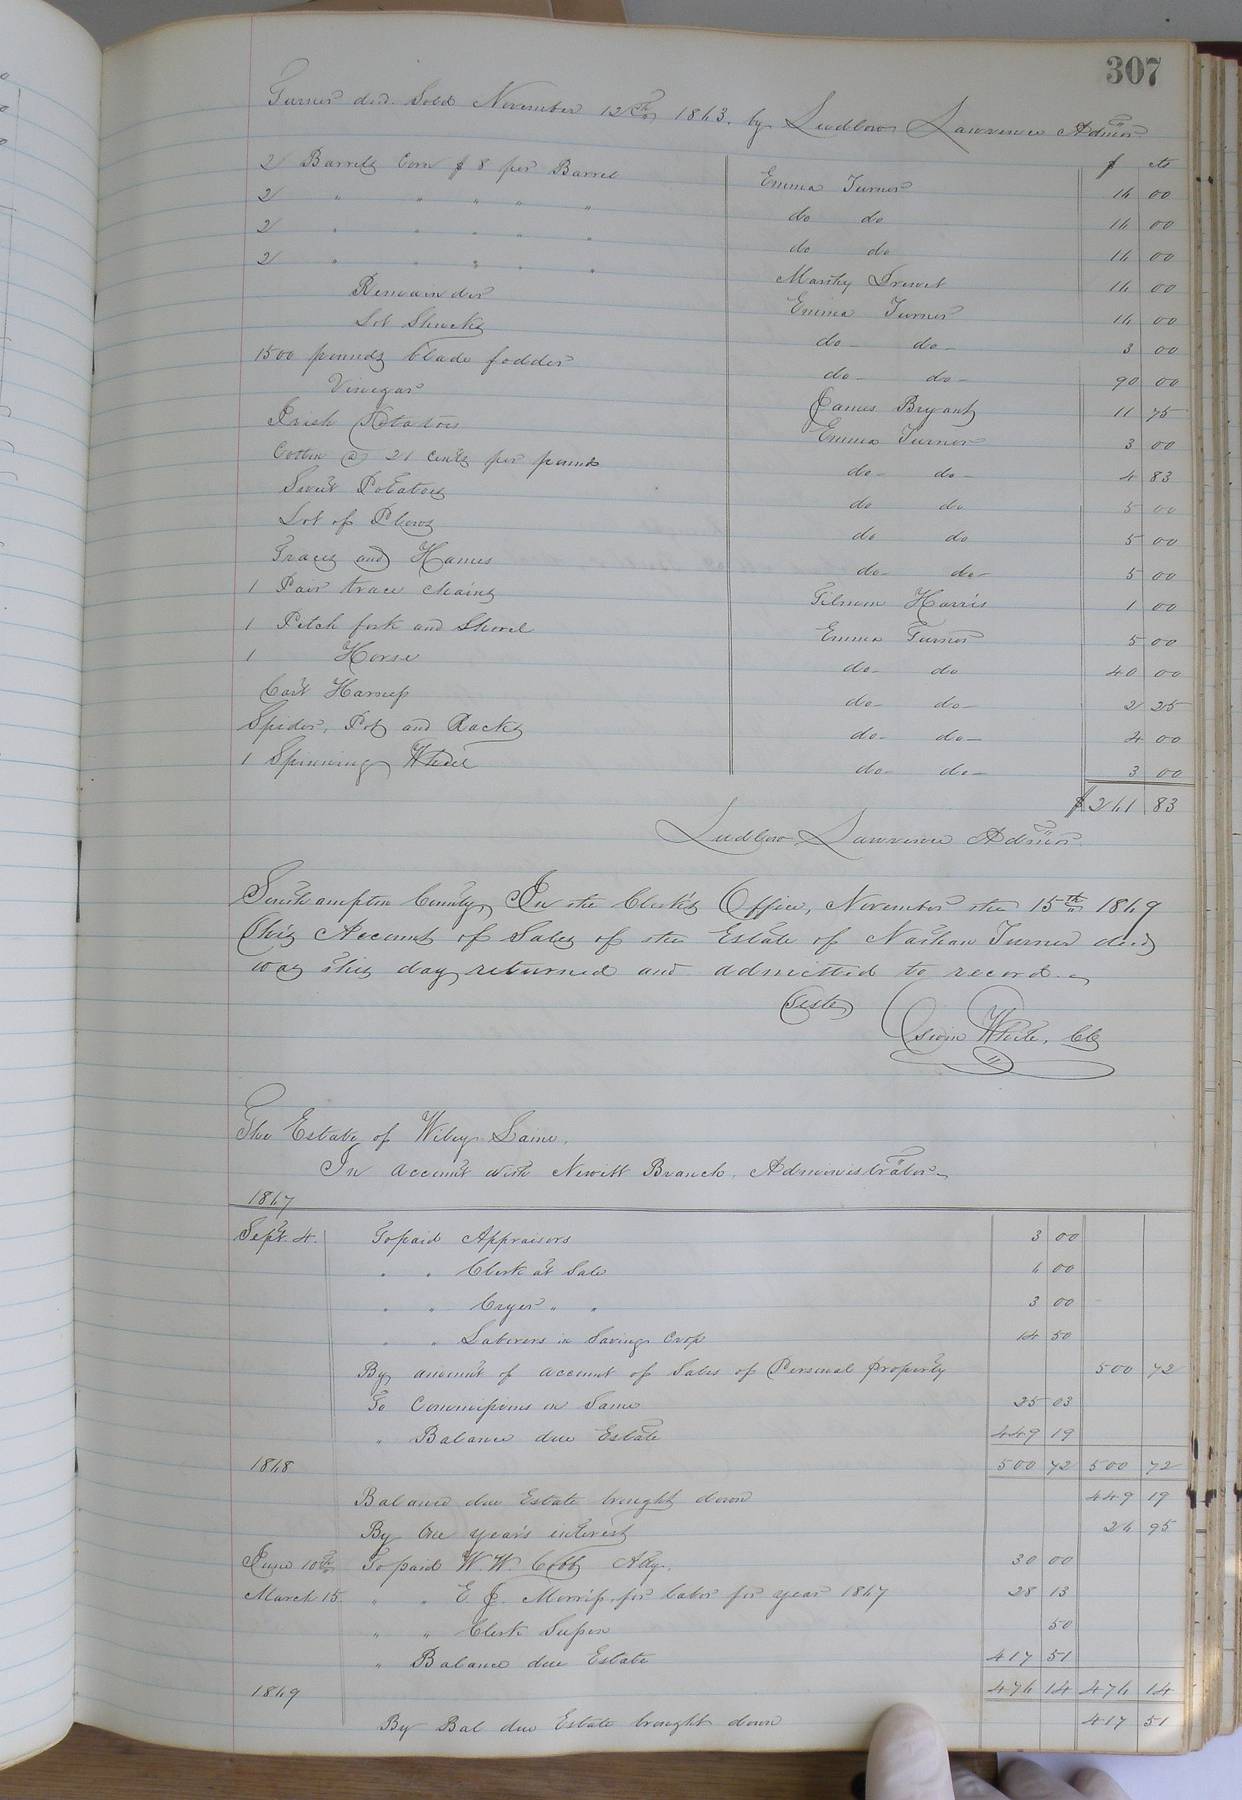 307
Turner decd. Sold November 12th 1863. by Ludlow Lawrence Admor
$ cts
2 Barrels Corn $8 per Barrel Emma Turner 16 00
2 " " " " " do do 16 00
2 " " " " " do do 16 00
2 " " " " " 16 00
Remainder Emma Turner 16 00
Lot Shucks do do 3 00
1500 pounds blade fodder do do 90 00
Vinegar James Bryant 11 75
Irish Potatoes Emma Turner 3 00
Cotton @ 21 cents per pound do do 4 83
Sweet Potatoes do do 5 00
Lot of Plows do do 5 00
Traces and Hames do do 5 00
1 Pair trace chains Harris 1 00
1 Pitch fork and Shovel Emma Turner 5 00
1 Horse do do 40 00
Cart Harness do do 2 25
Spider, Pot and Racks do do 4 00
1 Spinning Wheel do do 3 00
$ 261 83
Ludlow Lawrence Admor
Southampton County, In the Clerk's Office, November the 15th 1869
This Account of Sales of the Estate of Nathan Turner decd
was this day returned and admitted to record.
Teste
White, Clk
The Estate of Wiley Laine.
In account with Newitt Branch, Administrator
1867
Sept. 4. To paid Appraisors 3 00
" " Clerk at Sale 6 00
" " Cryer " " 3 00
" " Laborers in Saving Crop 14 50
By amount of account of Sales of Personal property 500 72
To Commissions on Same 25 03
" Balance due Estate 449 19
1868 500 72 500 72
Balance due Estate brought down 449 19
By One year's interest 26 95
June 10th To paid W. W. Cobb Atty. 30 00
March 15. " " E. J. Morriss for labor for year 1867 28 13
" " Clerk Super 50
" Balance due Estate 417 51
1869 476 14 476 14
By Bal due Estate brought down 417 51